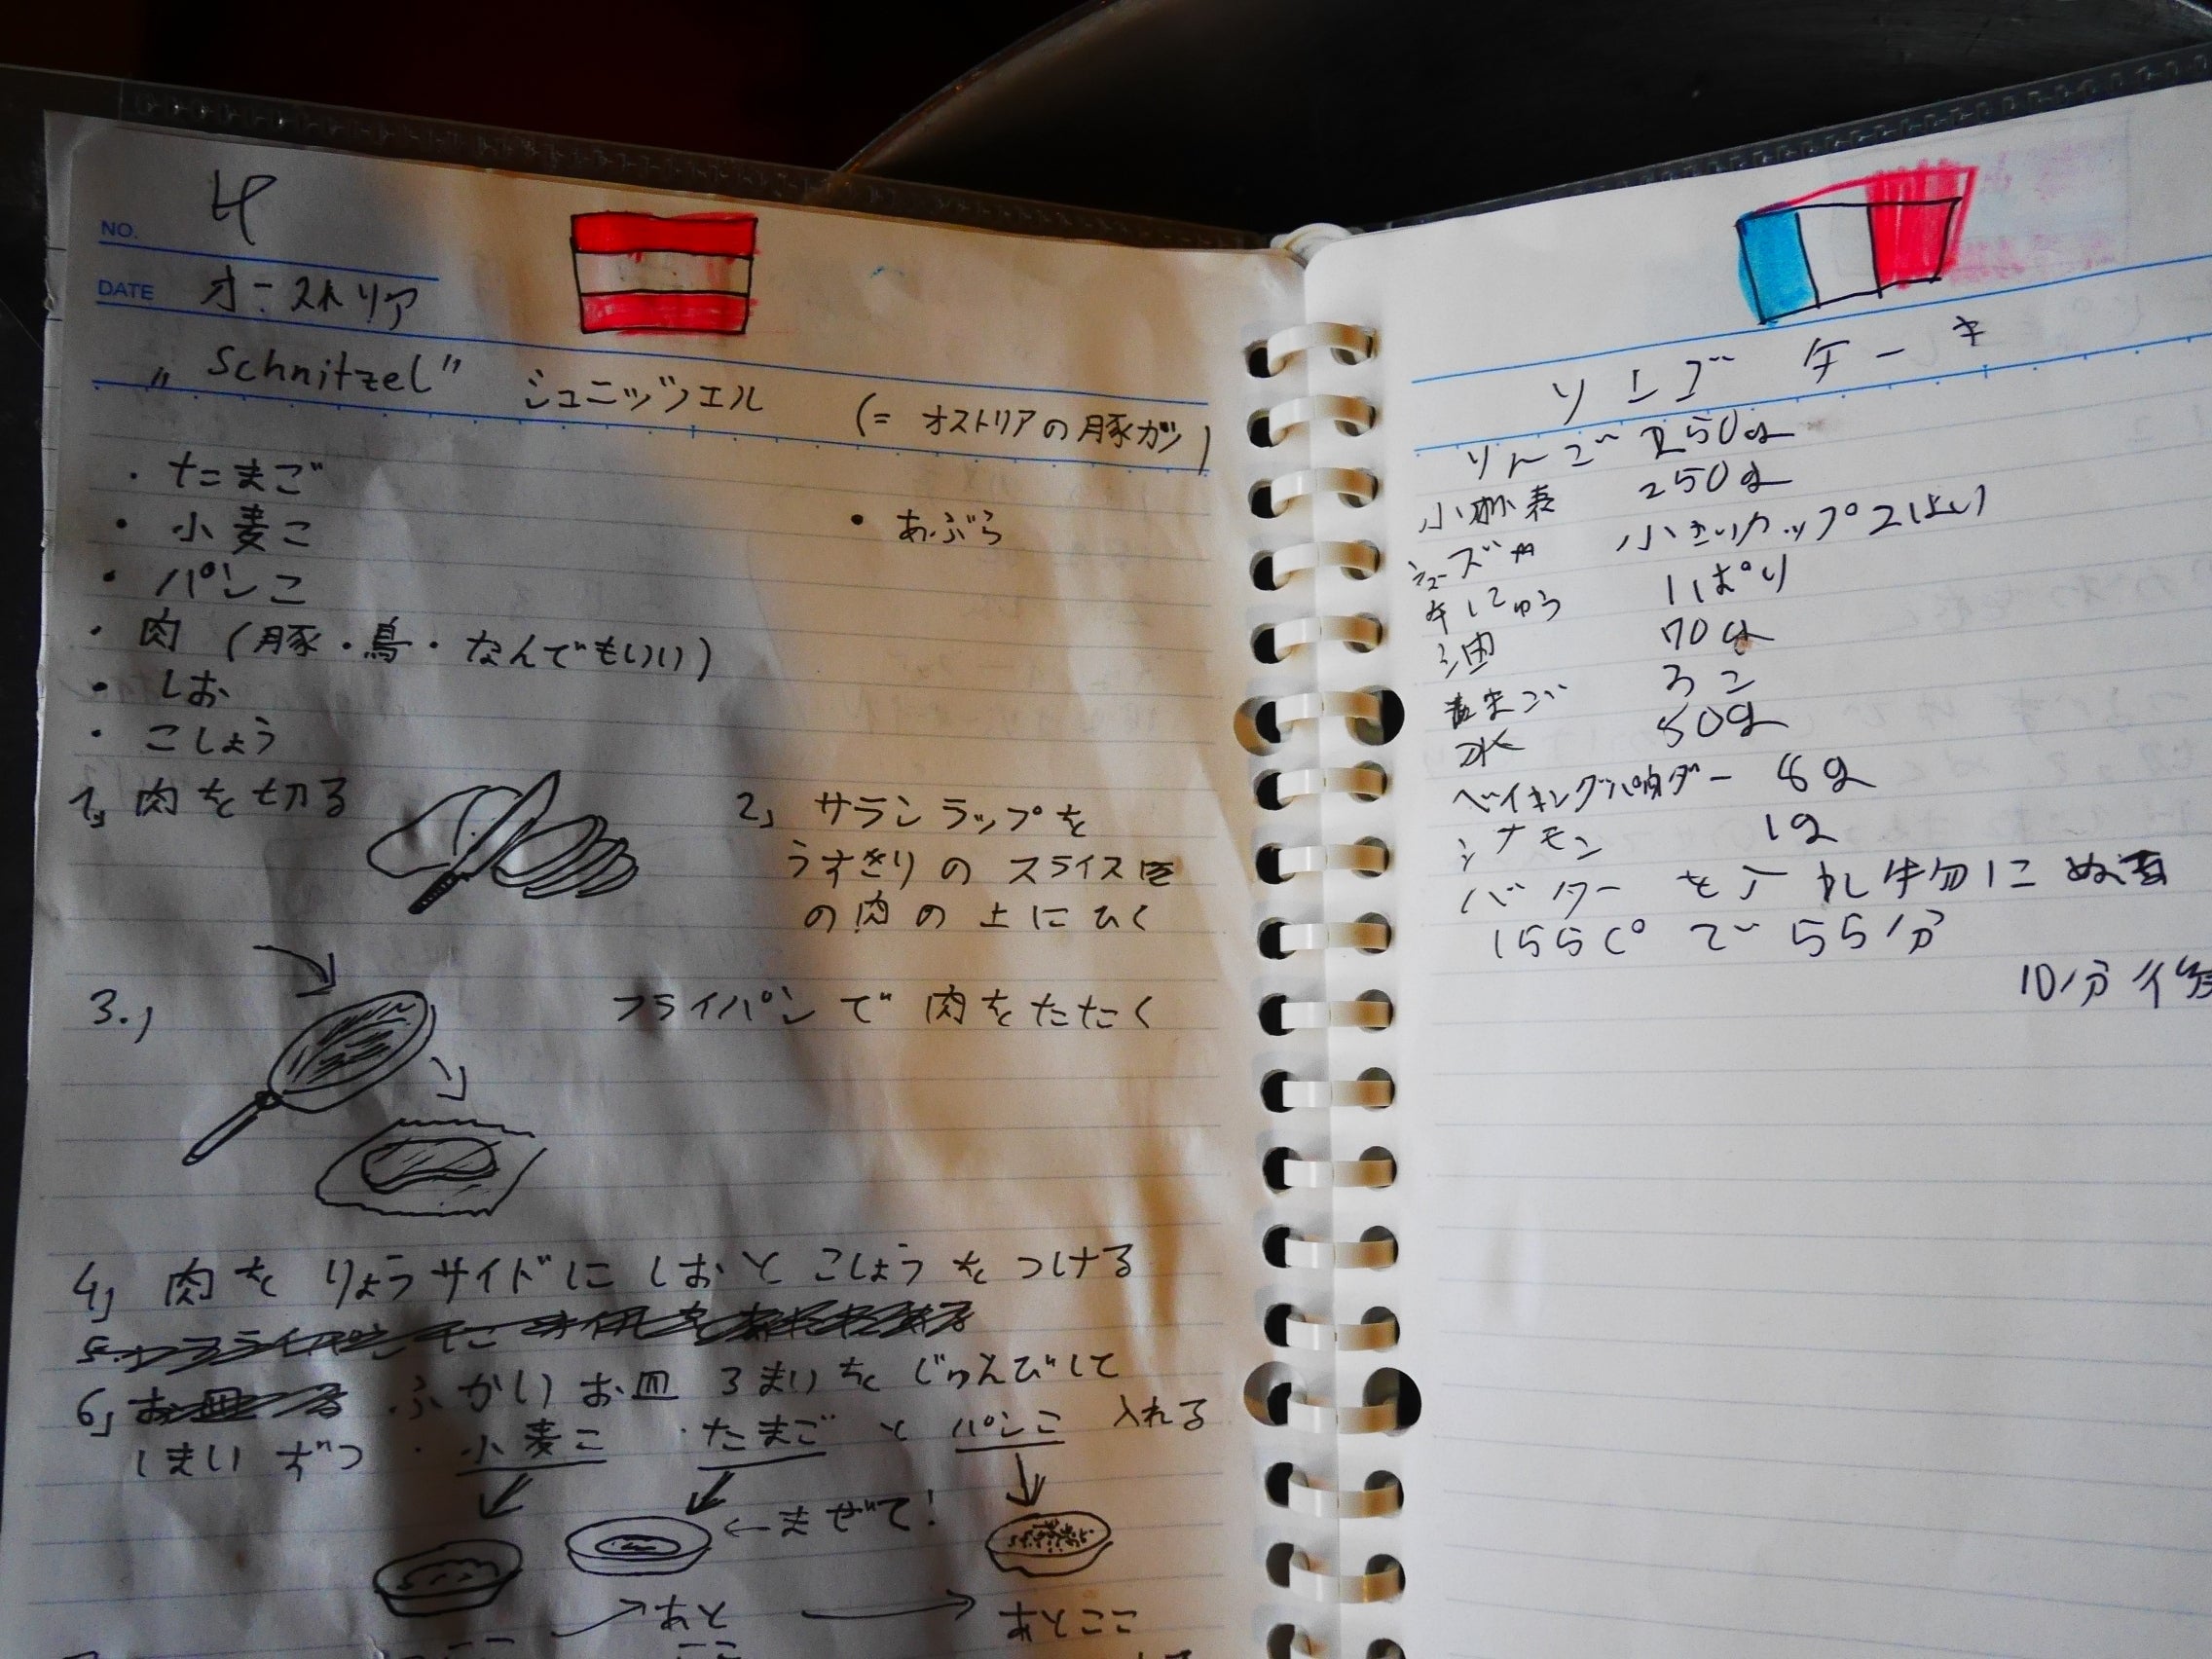 NO. 4
DATE オーストリア
„Schnitzel" シュニッツエル (= オストリアの豚カツ)
・たまご
・小麦こ
・あぶら
・パンこ
・肉 (豚・鳥・なんでもいい)
・しお
・こしょう
1, 肉を切る
2, サランラップを
うすきりのスライス
の肉の上にひく
3., フライパンで肉をたたく
4, 肉をりょうサイドにしおとこしょうをつける
6, ふかいお皿3まいをじゅんびして
しまいずつ・小麦こ ・たまごとパンこ 入れる
←まぜて!
あと
ここ
あとここ
リンゴケーキ
りんご 250g
小麦 250g
小さいカップ
牛にゅう 1ぱい
油 70g
たまご 3こ
水 50g
ベイキングパウダー 8g
シナモン 1g
バターを入れ物にぬる
155C°で55分
10分後